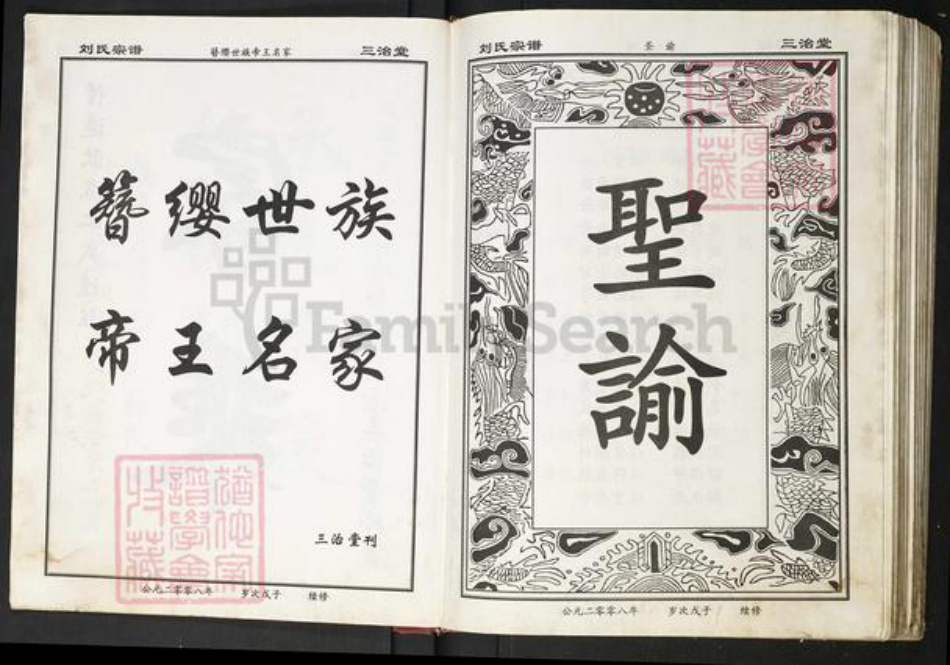 刘氏宗谱 簪缨世族帝王名家 三治堂
簪缨世族
帝王名家
三治堂刊
公元二零零八年 岁次戊子 续修
刘氏宗谱 圣谕 三治堂
聖諭
公元二零零八年 岁次戊子 续修
FamilySearch